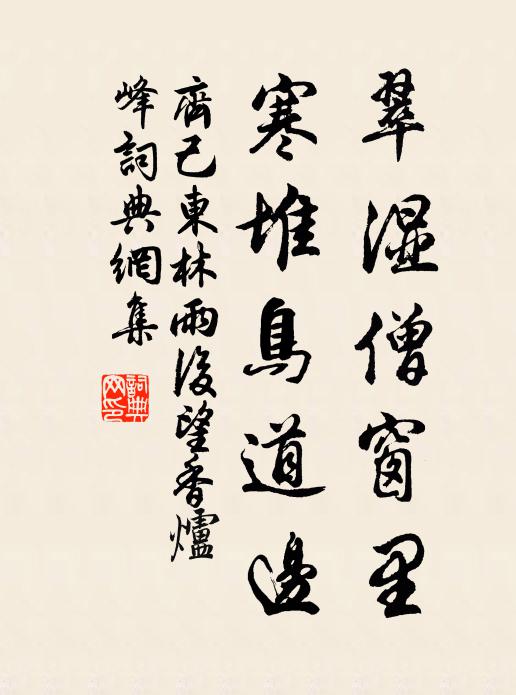 翠濕僧窗里
寒堆鳥道邊
齊己東林雨後望香爐
峰詞典網集
詞典
网印